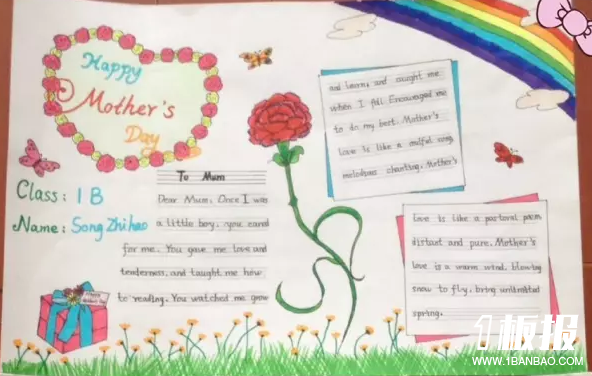 Happy
Mother's
Day
Class: 1B
Name: Song Zhihao
To Mum
Dear Mum: Once I was
a little boy, you cared
for me. You gave me love and
tenderness, and taught me how
to reading. You watched me grow
and learn, and caught me
when I fell. Encouraged me
to do my best. Mother's
love is like a song,
melodious chanting. Mother's
love is like a pastoral poem
distant and pure. Mother's
love is a warm wind, blowing
snow to fly, bring unlimited
spring.
1板报
WWW.1BANBAO.COM